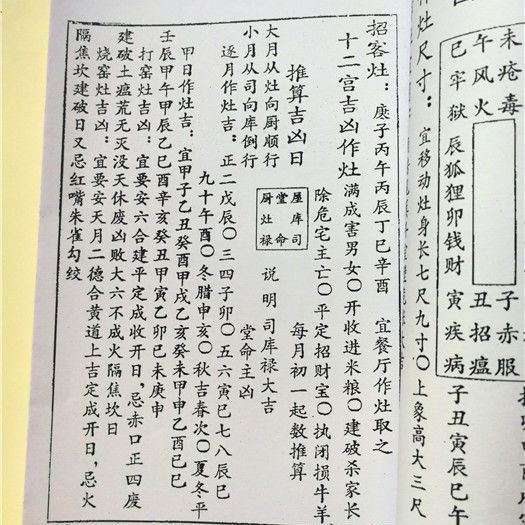 未疮毒
午风火
巳牢狱 辰狐狸 卯钱财 寅疾病
子赤服
丑招瘟
子丑寅辰巳午
作灶尺寸：宜移动灶身长七尺九寸〇上象高大三尺
招客灶：庚子丙午丙辰丁巳辛酉 宜餐厅作灶取之
十二宫吉凶作灶满成害男女〇开收进米粮〇建破杀家长
除危宅主亡〇平定招财宝〇执闭损牛羊
推算吉凶日 每月初一起数推算
屋库司
堂命
厨灶禄
大月从灶向厨顺行
小月从司向库倒行
说明 司库禄大吉
堂命主凶
逐月作灶吉：正二戊辰〇三四子卯〇五六寅巳七八辰巳
九十午酉〇冬腊申亥〇秋吉春次〇夏冬平
甲日作灶吉：宜甲子乙丑癸酉甲戌乙亥癸未甲申乙酉己巳
壬辰甲午甲辰乙巳己酉辛亥癸丑甲寅乙卯巳未庚申
打窑灶吉凶：宜要安六合建平定成收开日，忌赤口正四废
建破土瘟荒无灭没天休废凶败大六不成火隔焦坎日
烧窑灶吉凶：宜要安天月二德合黄道上吉定成开日，忌火
隔焦坎建破日又忌红嘴朱雀勾绞